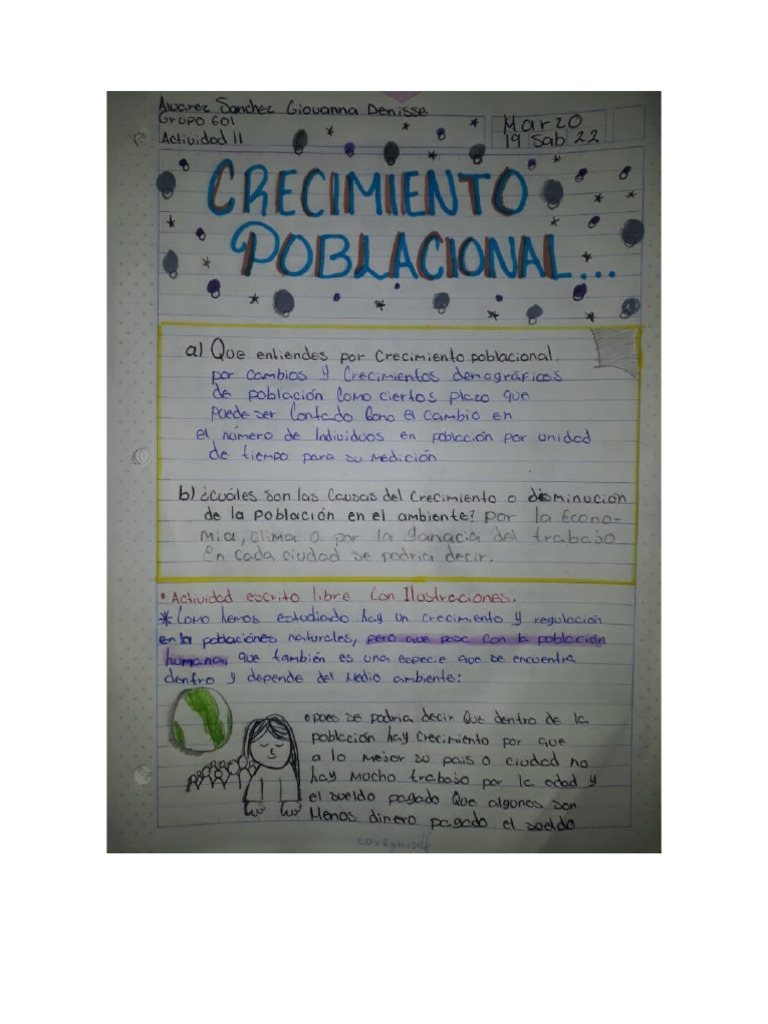 Alvarez Sanchez Giovanna Denisse
Grupo 601
Actividad 11
Marzo
19 Sab 22
CRECIMIENTO
POBLACIONAL...
a) Que entiendes por Crecimiento poblacional.
por cambios y Crecimientos demográficos
de población como ciertos plazo que
puede ser Contado Como el cambio en
el número de Individuos en población por unidad
de tiempo para su medición
b) ¿cuáles son las Causas del Crecimiento o disminución
de la población en el ambiente? por la Econo-
mia, clima o por la ganacia del trabajo
En cada ciudad se podria decir.
• Actividad escrito libre Con Ilustraciones.
* Como hemos estudiado hay un crecimiento y regulación
en la poblaciónes naturales, pero que pasa con la población
humana, que también es una especie que se encuentra
dentro y depende del Medio ambiente:
pues se podria decir Que dentro de la
población hay Crecimiento por que
a lo Mejor su pais o ciudad no
hay Mucho trabajo por la edad y
el sueldo pagado Que algunos son
Menos dinero pagado el sueldo
LOVE yourself